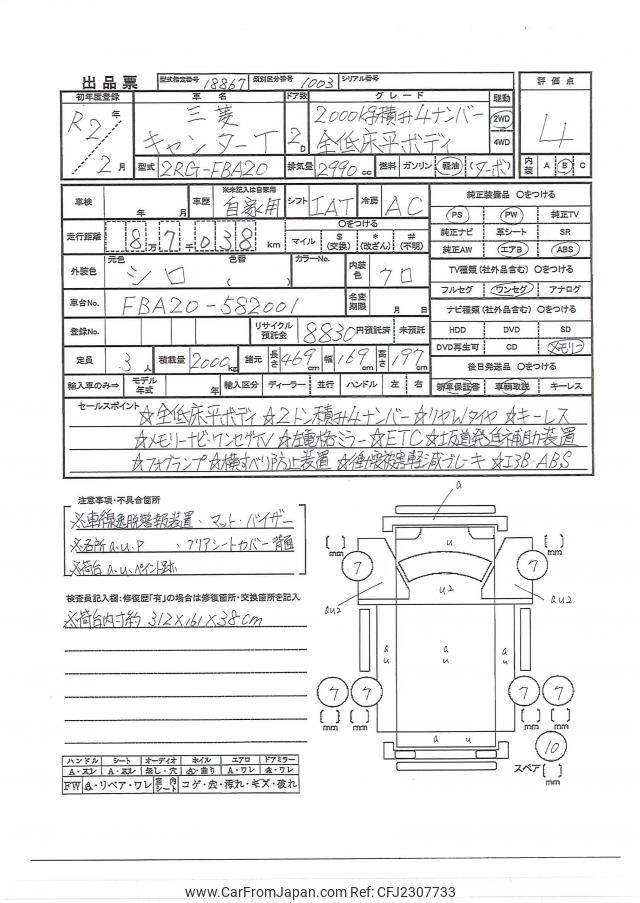 出品票 型式指定番号 18867 類別区分番号 1003 シリアル番号
初年度登録 車名 ドア数 グレード 駆動 評価点
R2年 三菱 2D 2000kg積み4ナンバー 2WD 4
2月 キャンターT 全低床平ボディ 4WD
型式 2RG-FBA20 排気量 2990cc 燃料 ガソリン 軽油 (ターボ) 内装 A B C
車検 年 月 車歴 ※未記入は自家用 自家用 シフト IAT 冷房 AC
純正装備品 ○をつける
走行距離 8万7千038km ○をつける マイル $(交換) *(改ざん) #(不明)
PS PW 純正TV
純正ナビ 革シート SR
純正AW エアB ABS
外装色 元色 シロ 色替 ( ) カラーNo. 内装色 クロ
TV種類(社外品含む) ○をつける
フルセグ ワンセグ アナログ
車台No. FBA20-582001 名変期限 月 日
ナビ種類(社外品含む) ○をつける
登録No. リサイクル預託金 8830円預託済 未預託
HDD DVD SD
DVD再生可 CD メモリー
定員 3人 積載量 2000kg 諸元 長さ 469cm 幅 169cm 高さ 197cm
後日発送品 ○をつける
輸入車のみ⇒ モデル年式 年 輸入区分 ディーラー 並行 ハンドル 左 右
新車保証書 車輌取説 キーレス
セールスポイント ☆全低床平ボディ ☆2トン積み4ナンバー ☆リヤWタイヤ ☆キーレス
☆メモリーナビ・ワンセグTV ☆左電格ミラー ☆ETC ☆坂道発進補助装置
☆フォグランプ ☆横すべり防止装置 ☆衝突被害軽減ブレーキ ☆エアB・ABS
注意事項・不具合箇所
※車線逸脱警報装置・マット・バイザー
※各所a.u.P 、フロアシートカバー 背面
※荷台a.u.ペイント跡
検査員記入欄:修復歴「有」の場合は修復箇所・交換箇所を記入
※荷台内寸約 312×161×38cm
a
u
[ ] mm
7
7
[ ] mm
u2
au2
au2
a u
a u
a u
7 7
7 7
[ ] mm [ ] mm
[ ] mm [ ] mm
a u
10
スペア [ ] mm
ハンドル シート オーディオ ホイル エアロ ドアミラー
A・スレ A・スレ 無し・穴 A・曲り A・ワレ A・ワレ
FW A・リペア・ワレ 室内シート コゲ・穴・汚れ・キズ・破れ
www.CarFromJapan.com Ref: CFJ2307733